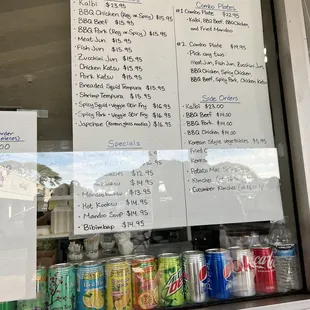 Kalbi $23.95
BBQ Chicken (Reg or Spicy) $15.95
BBQ Beef $15.95
BBQ Pork (Reg or Spicy) $15.95
Meat Jun $15.95
Fish Jun $15.95
Zucchini Jun $15.95
Chicken Katsu $15.95
Pork Katsu $15.95
Breaded Squid Tempura $15.95
Shrimp Tempura $15.95
Spicy Squid + Veggie Stir Fry $16.95
Spicy Pork + Veggie Stir Fry $16.95
Japchae (Korean glass noodle) $16.95
Specials
$16.95
$14.95
$13.95
Hot Kooksu $14.95
Mandoo Soup $14.95
Bibimbap $14.95
Combo Plates
#1 Combo Plate $22.95
Kalbi, BBQ Beef, BBQ Chicken
and Fried Mandoo
#2 Combo Plate $19.95
Pick any two:
Meat Jun, Fish Jun, Zucchini Jun
BBQ Chicken, Spicy Chicken
BBQ Beef, Spicy Pork, Chicken Kat
Side Orders
Kalbi $23.00
BBQ Beef $14.00
BBQ Pork $14.00
BBQ Chicken $14.00
Korean Style vegetables $9.
Potato Mac
Kimchee
Cucumber Kimchee
Order
.00